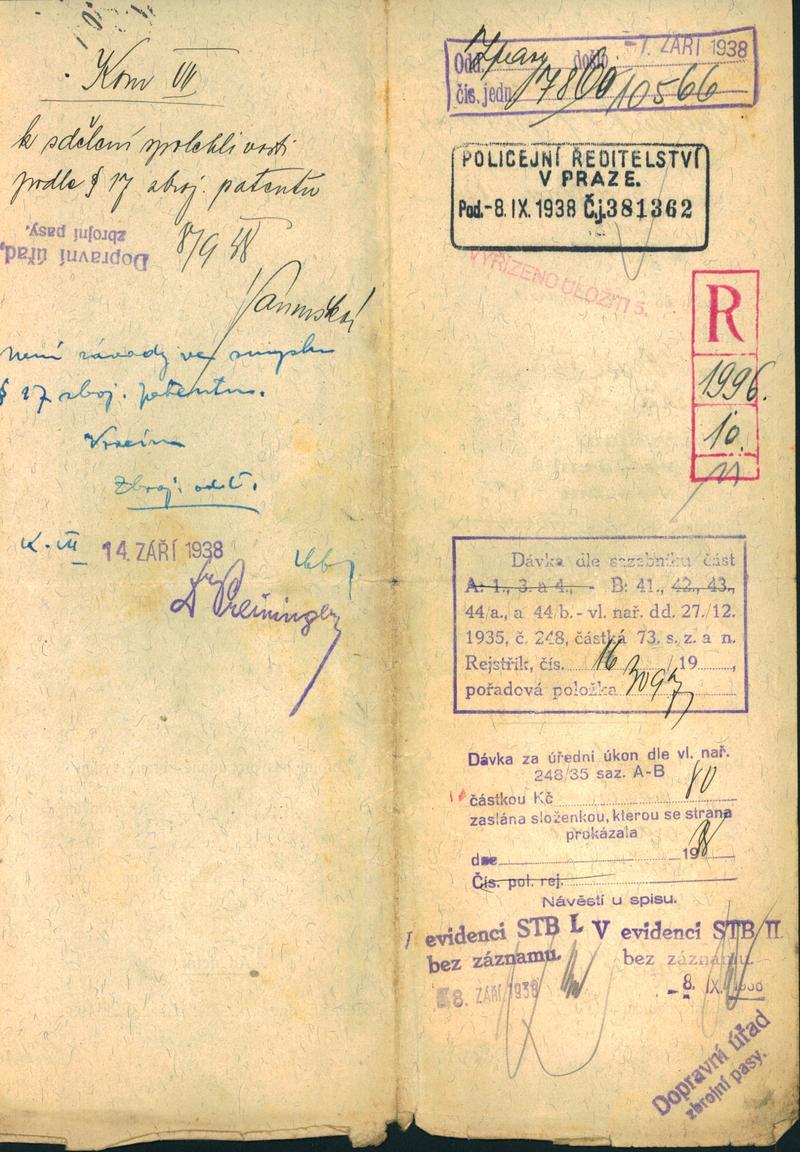 Kom VII
k sdělení spolehlivosti
podle § 17 zbroj. patentu
8/9 38
Dopravní úřad,
zbrojní pasy.
není závady ve smyslu
§ 17 zbroj. patentu.
Zbroj. odd.
K. VII
14. ZÁŘÍ 1938
Dr Preininger
Odd. došlo -7. ZÁŘÍ 1938
čís. jedn. 10566
POLICEJNÍ ŘEDITELSTVÍ
V PRAZE.
Pod.-8. IX. 1938 Č.j. 381362
VYŘÍZENO ULOŽITI
R
1996.
10.
Dávka dle sazebníku část
A: 1., 3. a 4., - B: 41., 42., 43.,
44/a., a 44/b. - vl. nař. dd. 27./12.
1935, č. 248, částka 73. s. z. a n.
Rejstřík, čís. 16 /19 ,
pořadová položka
Dávka za úřední úkon dle vl. nař.
248/35 saz. A-B
částkou Kč 80
zaslána složenkou, kterou se strana
prokázala
dne 1938
Čís. pol. rej.
Návěstí u spisu.
evidenci STB I.
bez záznamu.
8. ZÁŘÍ 1938
V evidenci STB II.
bez záznamu.
-8. IX. 1938
Dopravní úřad
zbrojní pasy.